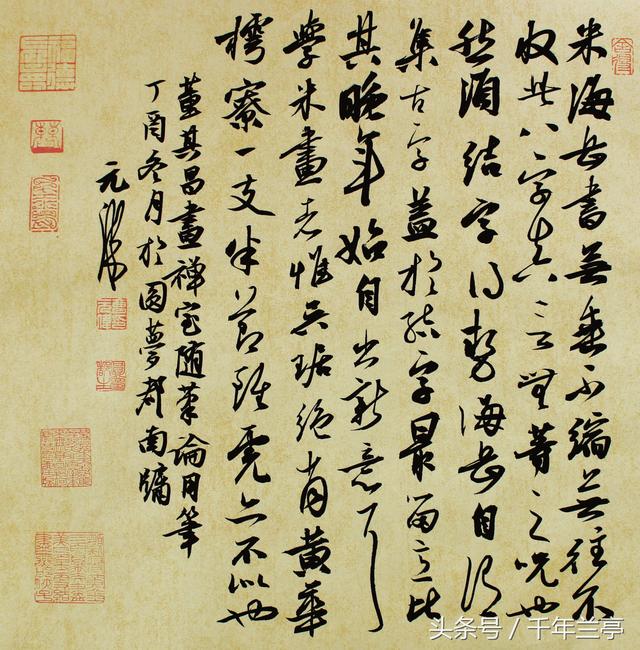 米海岳書無垂不縮無往不
收此八字真言無等等咒也
然須結字得勢海岳自謂
集古字蓋於結字最留意比
其晚年始自出新意耳
學米畫者惟吳琚絕肖黃華
樗寮一支半節雖虎亦不似也
董其昌畫禪室隨筆論用筆
丁酉冬月於圓夢齋南牖
元
头条号／千年兰亭